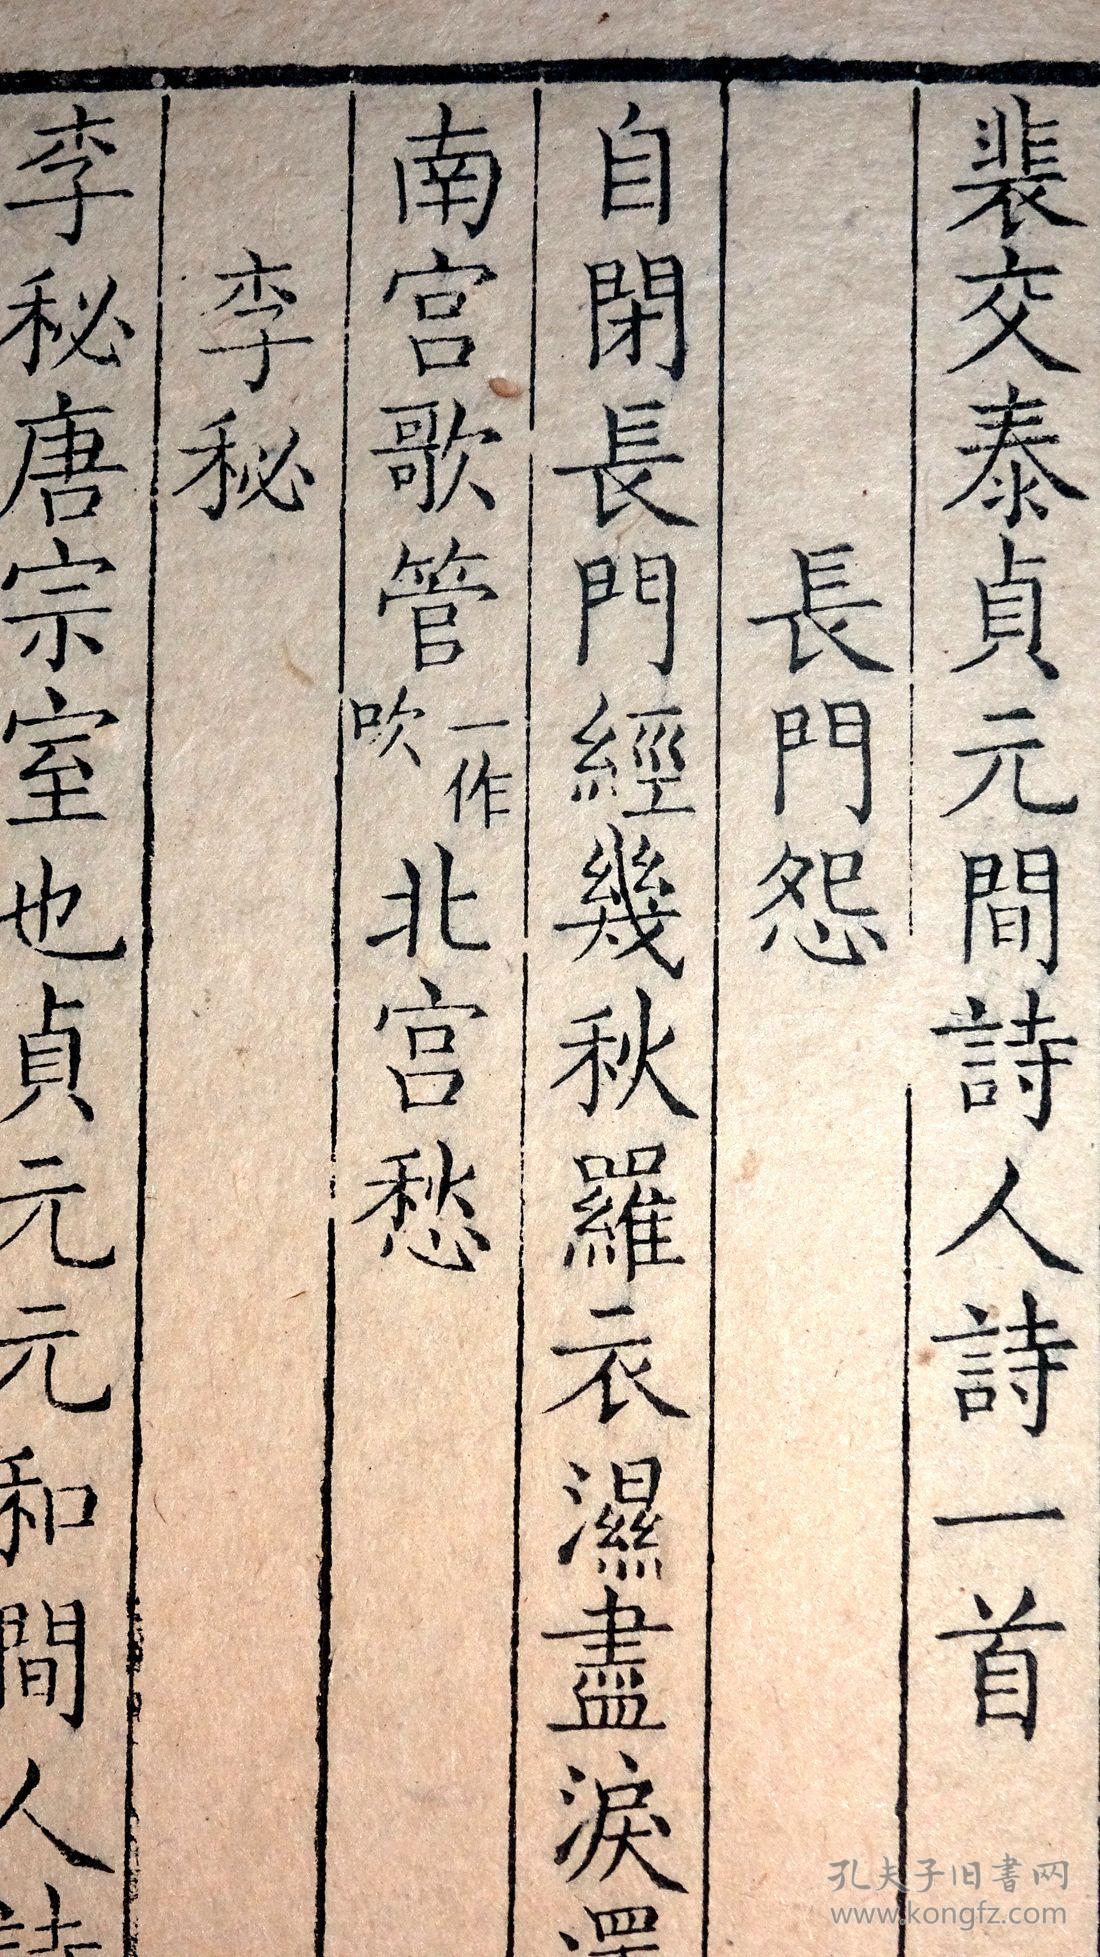 裴交泰貞元間詩人詩一首
長門怨
自閉長門經幾秋羅衣濕盡淚還
南宮歌管一作吹北宮愁
李秘
李秘唐宗室也貞元元和間人詩
孔夫子旧書网
www.kongfz.com